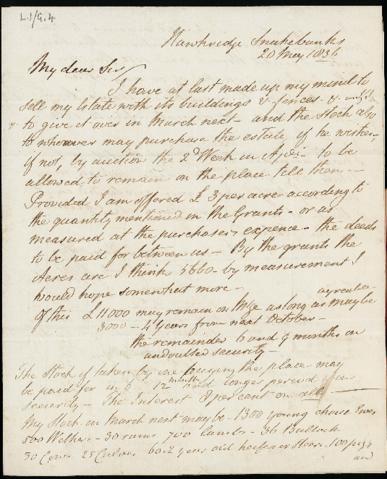 L.J/G.4
Hawkridge Snakebanks
20 May 1836
My dear Sir
I have at last made up my mind to
sell my estate with its buildings & fences &
to give it over in March next - and the Stock also
to whoever may purchase the estate if he wishes
if not, by auction the 2d Week in to be
allowed to remain on the place till then -
Provided I am offered £3 per acre according to
the quantity mentioned in the Grants - or as
measured at the purchasers expence - the deeds
to be paid for between us - By the grants the
Acres are I think 5660 by measurement I
would hope somewhat more -
of this £11000 may remain on as long as may be
3000 - 4 Years from next October -
the remainder 6 and 9 months on
undoubted security -
The Stock if taken by the place may
be paid for in 6 12 longer period
security - The Interest 8 per cent on all
My Stock in March next may be - 1300 young choice Ewes
500 Wethers - 30 rams 700 lambs - 36 Bullocks
30 Cows 25 Calves 60 2 years old heifers or Steers, 100 pigs
and